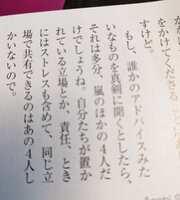 をかけてくださる
すけど。
もし、誰かのアドバイスみた
いなものを真剣に聞くとしたら、
それは多分、嵐のほかの4人だ
けでしょうね。自分たちが置か
れている立場とか、責任、とき
にはストレスも含めて、同じ立
場で共有できるのはあの4人し
かいないので。